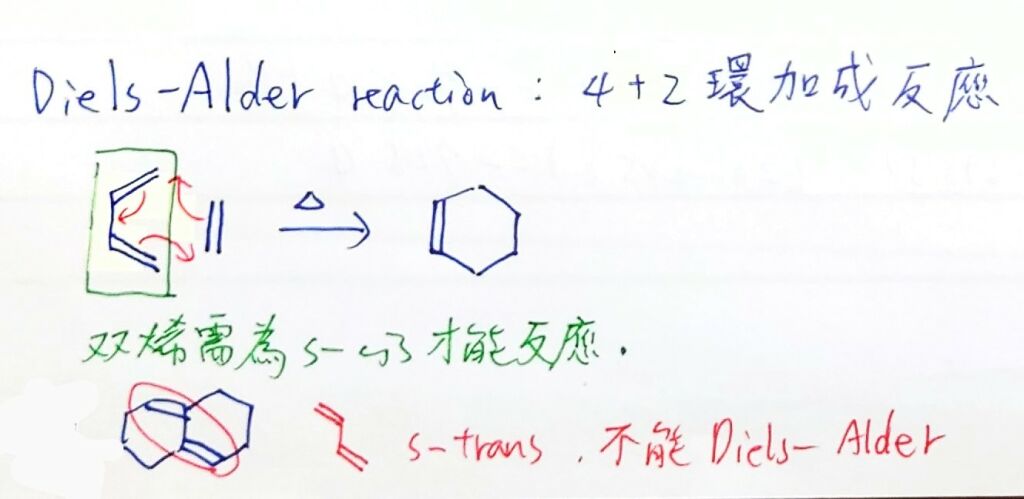 Diels-Alder reaction : 4+2 環加成反應
△
双烯需為 s-cis 才能反應.
s-trans , 不能 Diels-Alder